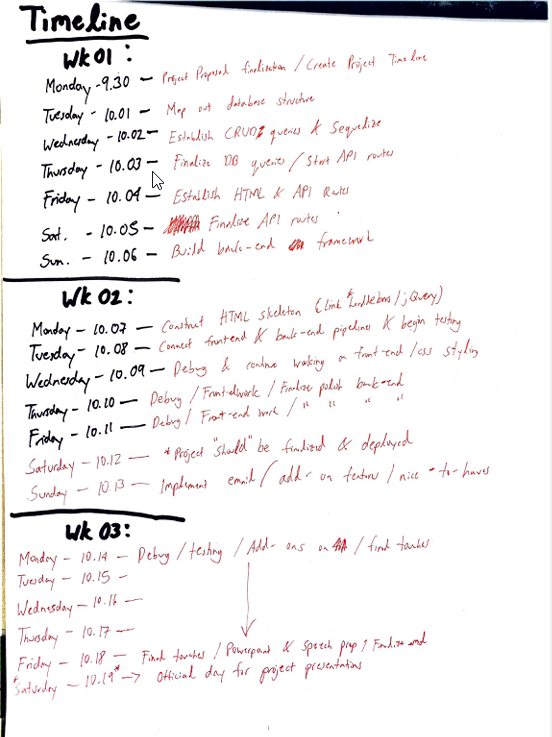 Timeline
Wk 01:
Monday - 9.30 — Project Proposal finalization / Create Project Timeline
Tuesday - 10.01 — Map out database structure
Wednesday - 10.02 — Establish CRUD queries & Sequelize
Thursday - 10.03 — Finalize DB queries / Start API routes
Friday - 10.04 — Establish HTML & API Routes
Sat. - 10.05 — Finalize API routes
Sun. - 10.06 — Build back-end framework
Wk 02:
Monday - 10.07 — Construct HTML skeleton (Link * handlebars / jQuery)
Tuesday - 10.08 — Connect front-end & back-end pipelines & begin testing
Wednesday - 10.09 — Debug & continue working on front-end / css styling
Thursday - 10.10 — Debug / Front-end work / Finalize polish back-end
Friday - 10.11 — Debug / Front-end work / " " " "
Saturday - 10.12 — *Project "should" be finalized & deployed
Sunday - 10.13 — Implement email / add-on features / nice-to-haves
Wk 03:
Monday - 10.14 - Debug / testing / Add-ons / final touches
Tuesday - 10.15 -
Wednesday - 10.16 -
Thursday - 10.17 —
Friday - 10.18 - Final touches / Powerpoint & Speech prep / Finalize
*Saturday - 10.19* -> Official day for project presentations